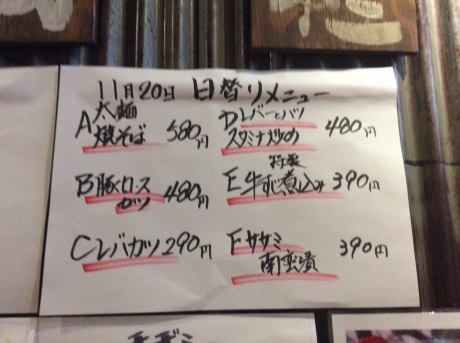 11月20日 日替りメニュー
A 太麺
焼そば 580円
B 豚ロース
カツ 480円
C レバカツ 290円
D レバーとハツ
スタミナ炒め 480円
特製
E 牛すじ煮込み 390円
F ササミ
南蛮漬 390円
チヂミ